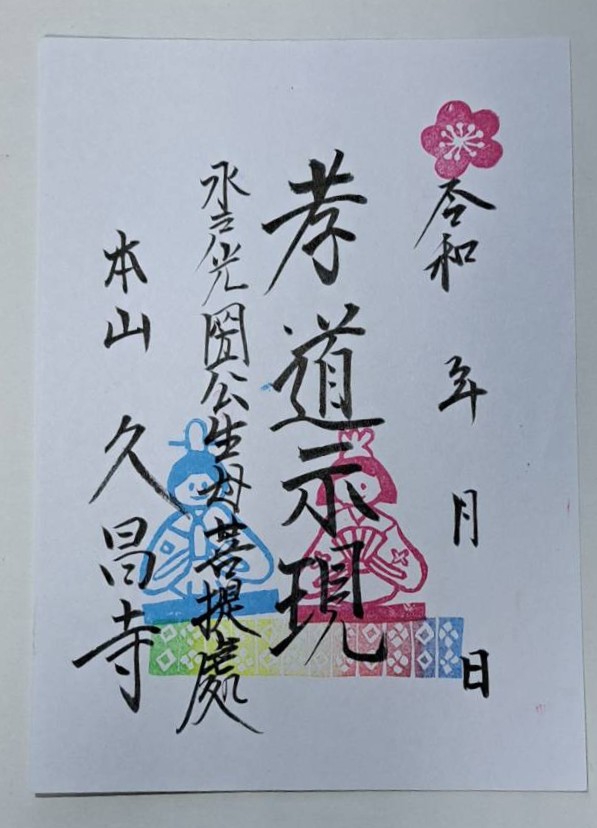 令和　年　月　日
孝道示現
水戸光圀公生母菩提處
本山　久昌寺